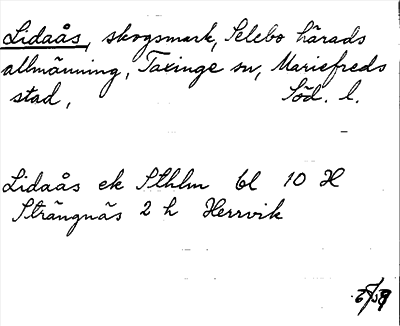 Lidaås, skogsmark, Selebo härads
allmänning, Taxinge sn, Mariefreds
stad, Söd. l.
Lidaås ek Sthlm bl 10 H
Strängnäs 2 h Herrvik